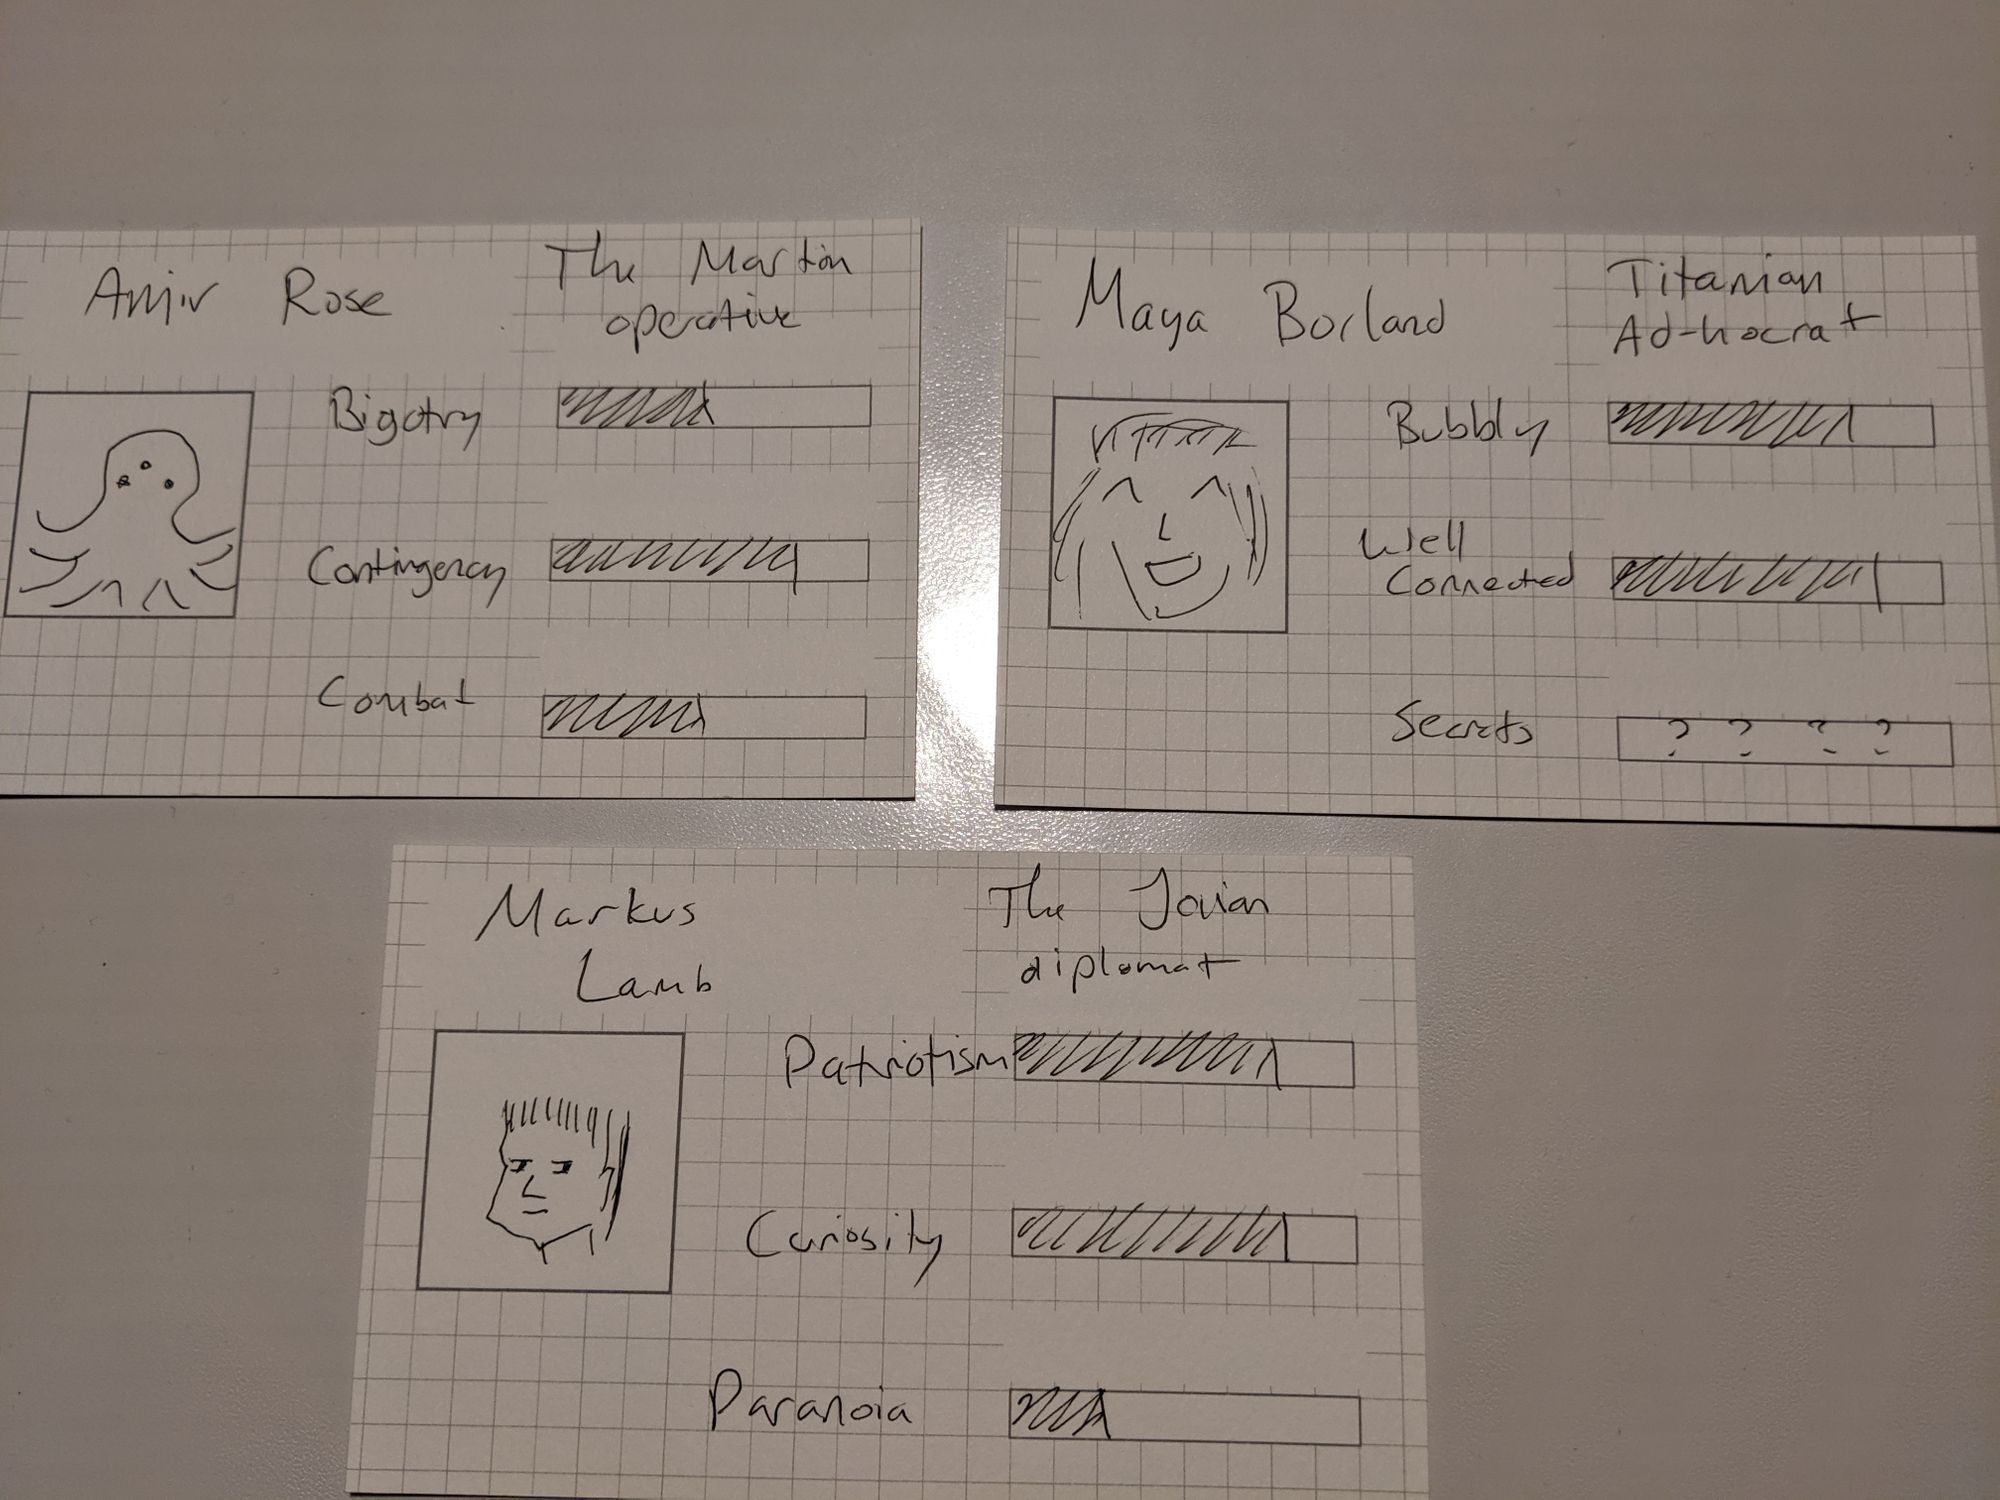 Amir Rose
The Martian
operative
Bigotry
Contingency
Combat
Maya Borland
Titanian
Ad-hocrat
Bubbly
Well
Connected
Secrets
? ? ? ?
Markus
Lamb
The Jovian
diplomat
Patriotism
Curiosity
Paranoia